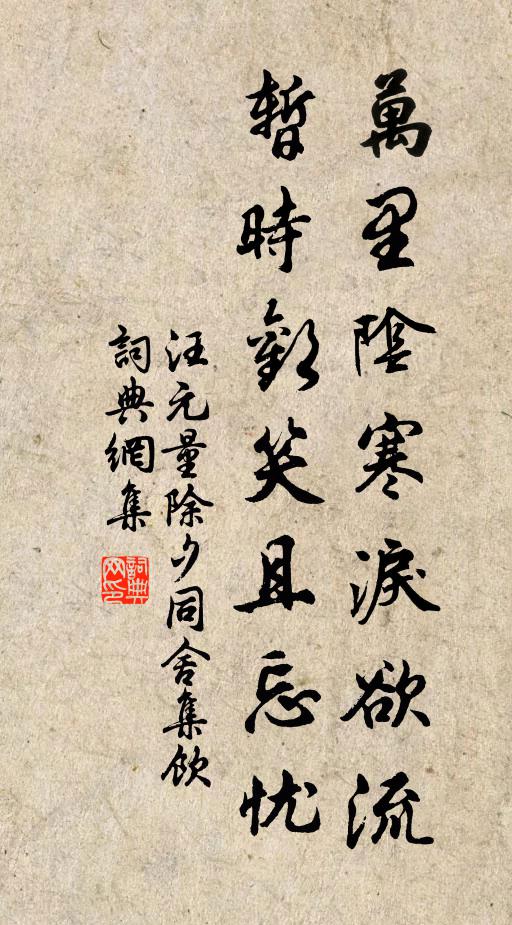 萬里陰寒淚欲流
暫時歡笑且忘忧
汪元量除夕同舍集飲
詞典網集
詞典网印